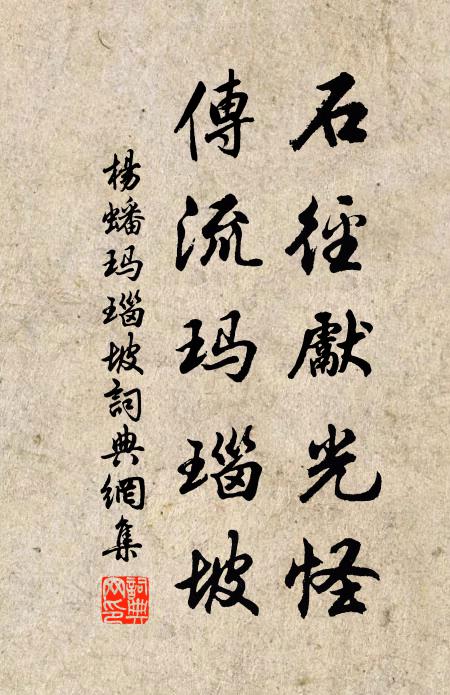 石徑獻光怪
傳流玛瑙坡
楊蟠玛瑙坡詞典網集